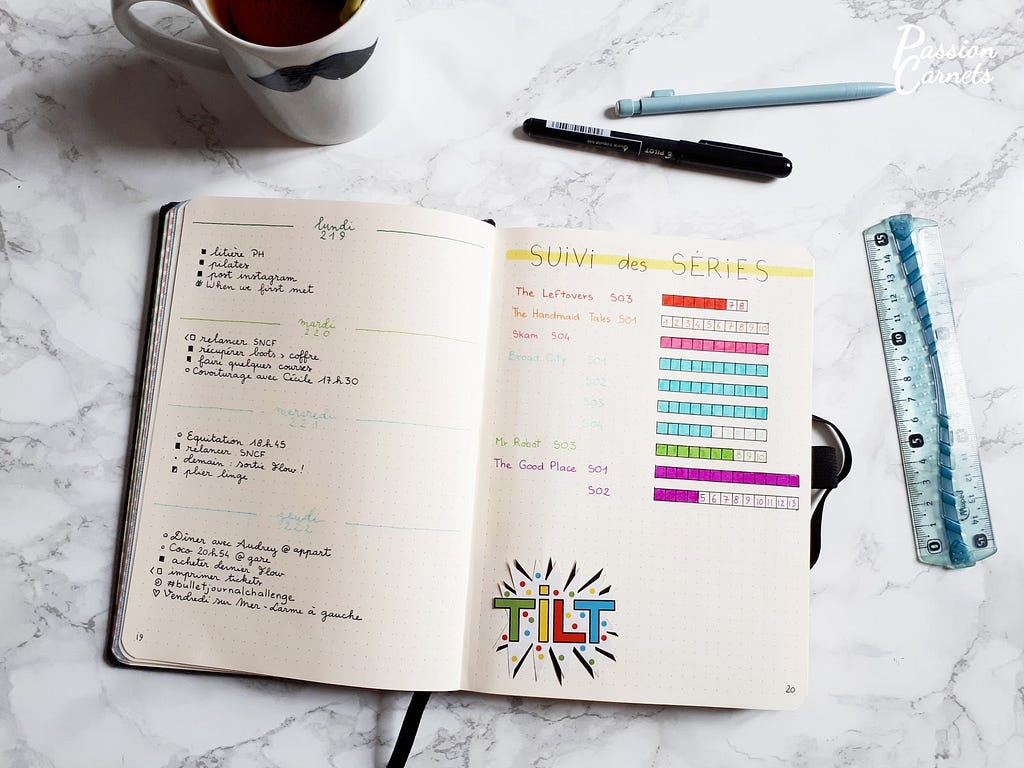 Passion
Carnets
PILOT
lundi
219
litière PH
pilates
post instagram
When we first met
mardi
220
relancer SNCF
récupérer boots > coffre
faire quelques courses
Covoiturage avec Cécile 17h30
mercredi
221
Equitation 18h45
relancer SNCF
demain : sortie Flow !
plier linge
jeudi
222
Dîner avec Audrey @ appart
Coco 20h54 @ gare
acheter dernier Flow
imprimer tickets
#bulletjournalchallenge
Vendredi sur Mer - Larme à gauche
19
SUiVi des SÉRIES
The Leftovers S03 7 8
The Handmaid Tales S01 1 2 3 4 5 6 7 8 9 10
Skam S04
Broad City S01
S02
S03
S04
Mr Robot S03 8 9 10
The Good Place S01
S02 5 6 7 8 9 10 11 12 13
TiLT
20
15 14 13 12 11 10 9 8 7 6 5 4 3 2 1 0